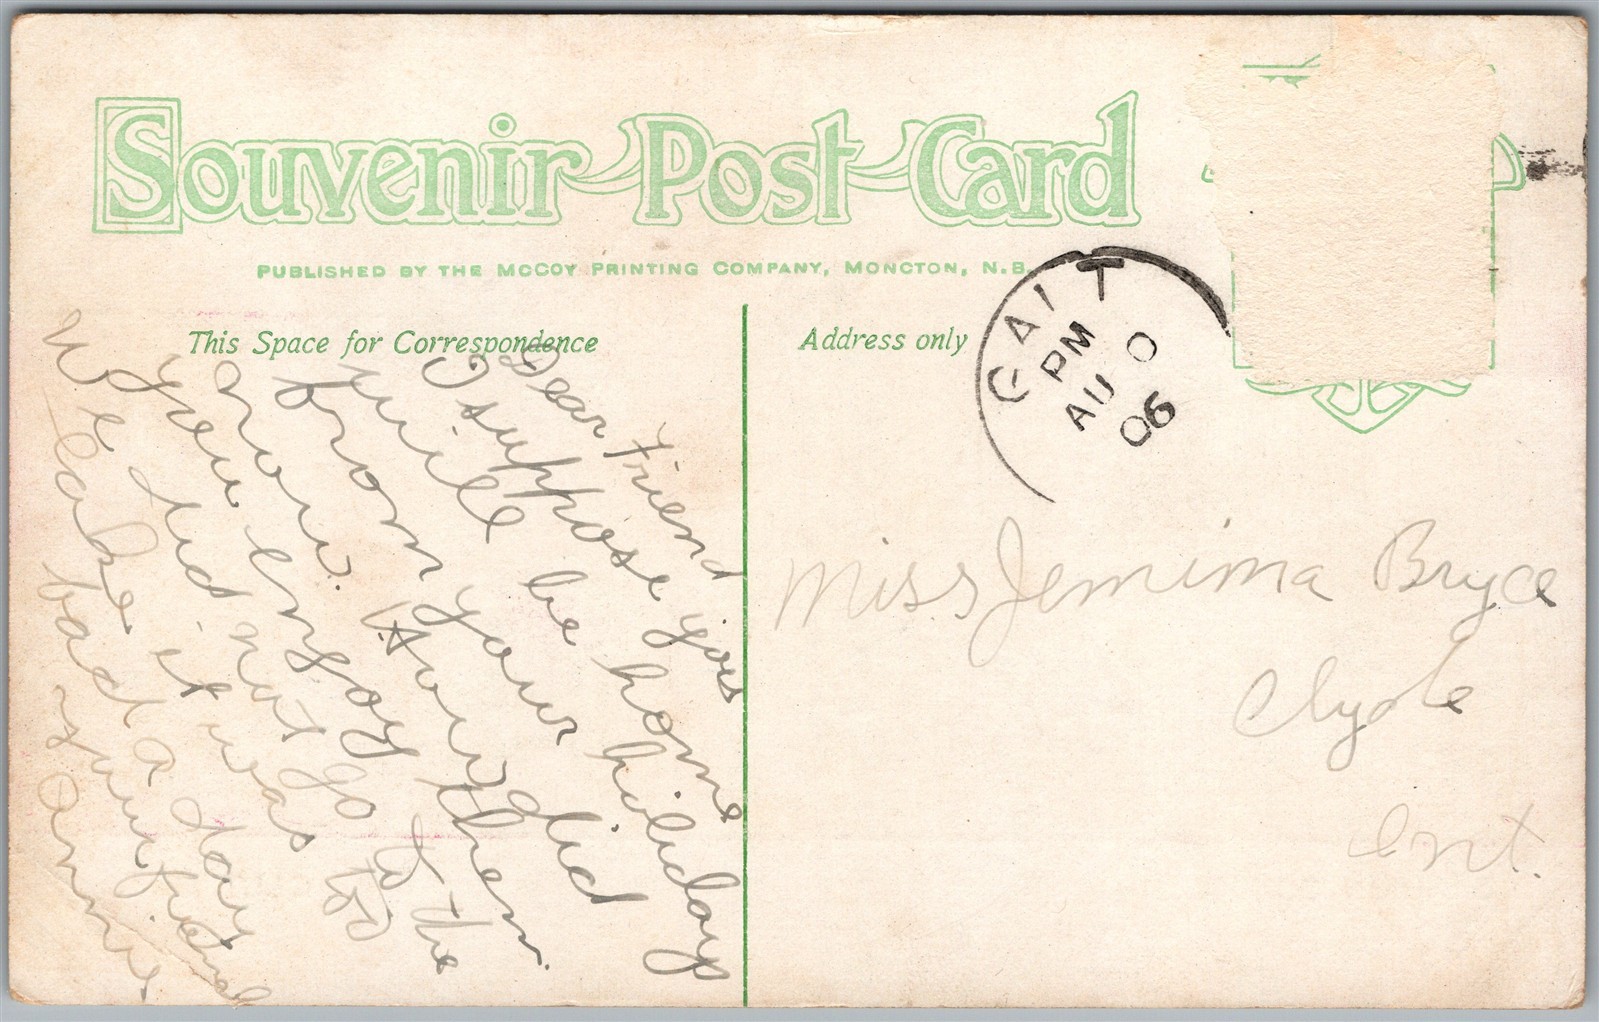 Souvenir Post Card
PUBLISHED BY THE MCCOY PRINTING COMPANY, MONCTON, N.B.
This Space for Correspondence
Address only
GALT
PM
AU 0
06
Dear Friend
I suppose you
will be home
from your holidays
now. How did
you enjoy them.
We did not go to the
lake it was too
bad a day
as your friend
Annie
Miss Jemima Bryce
Clyde
Ont.